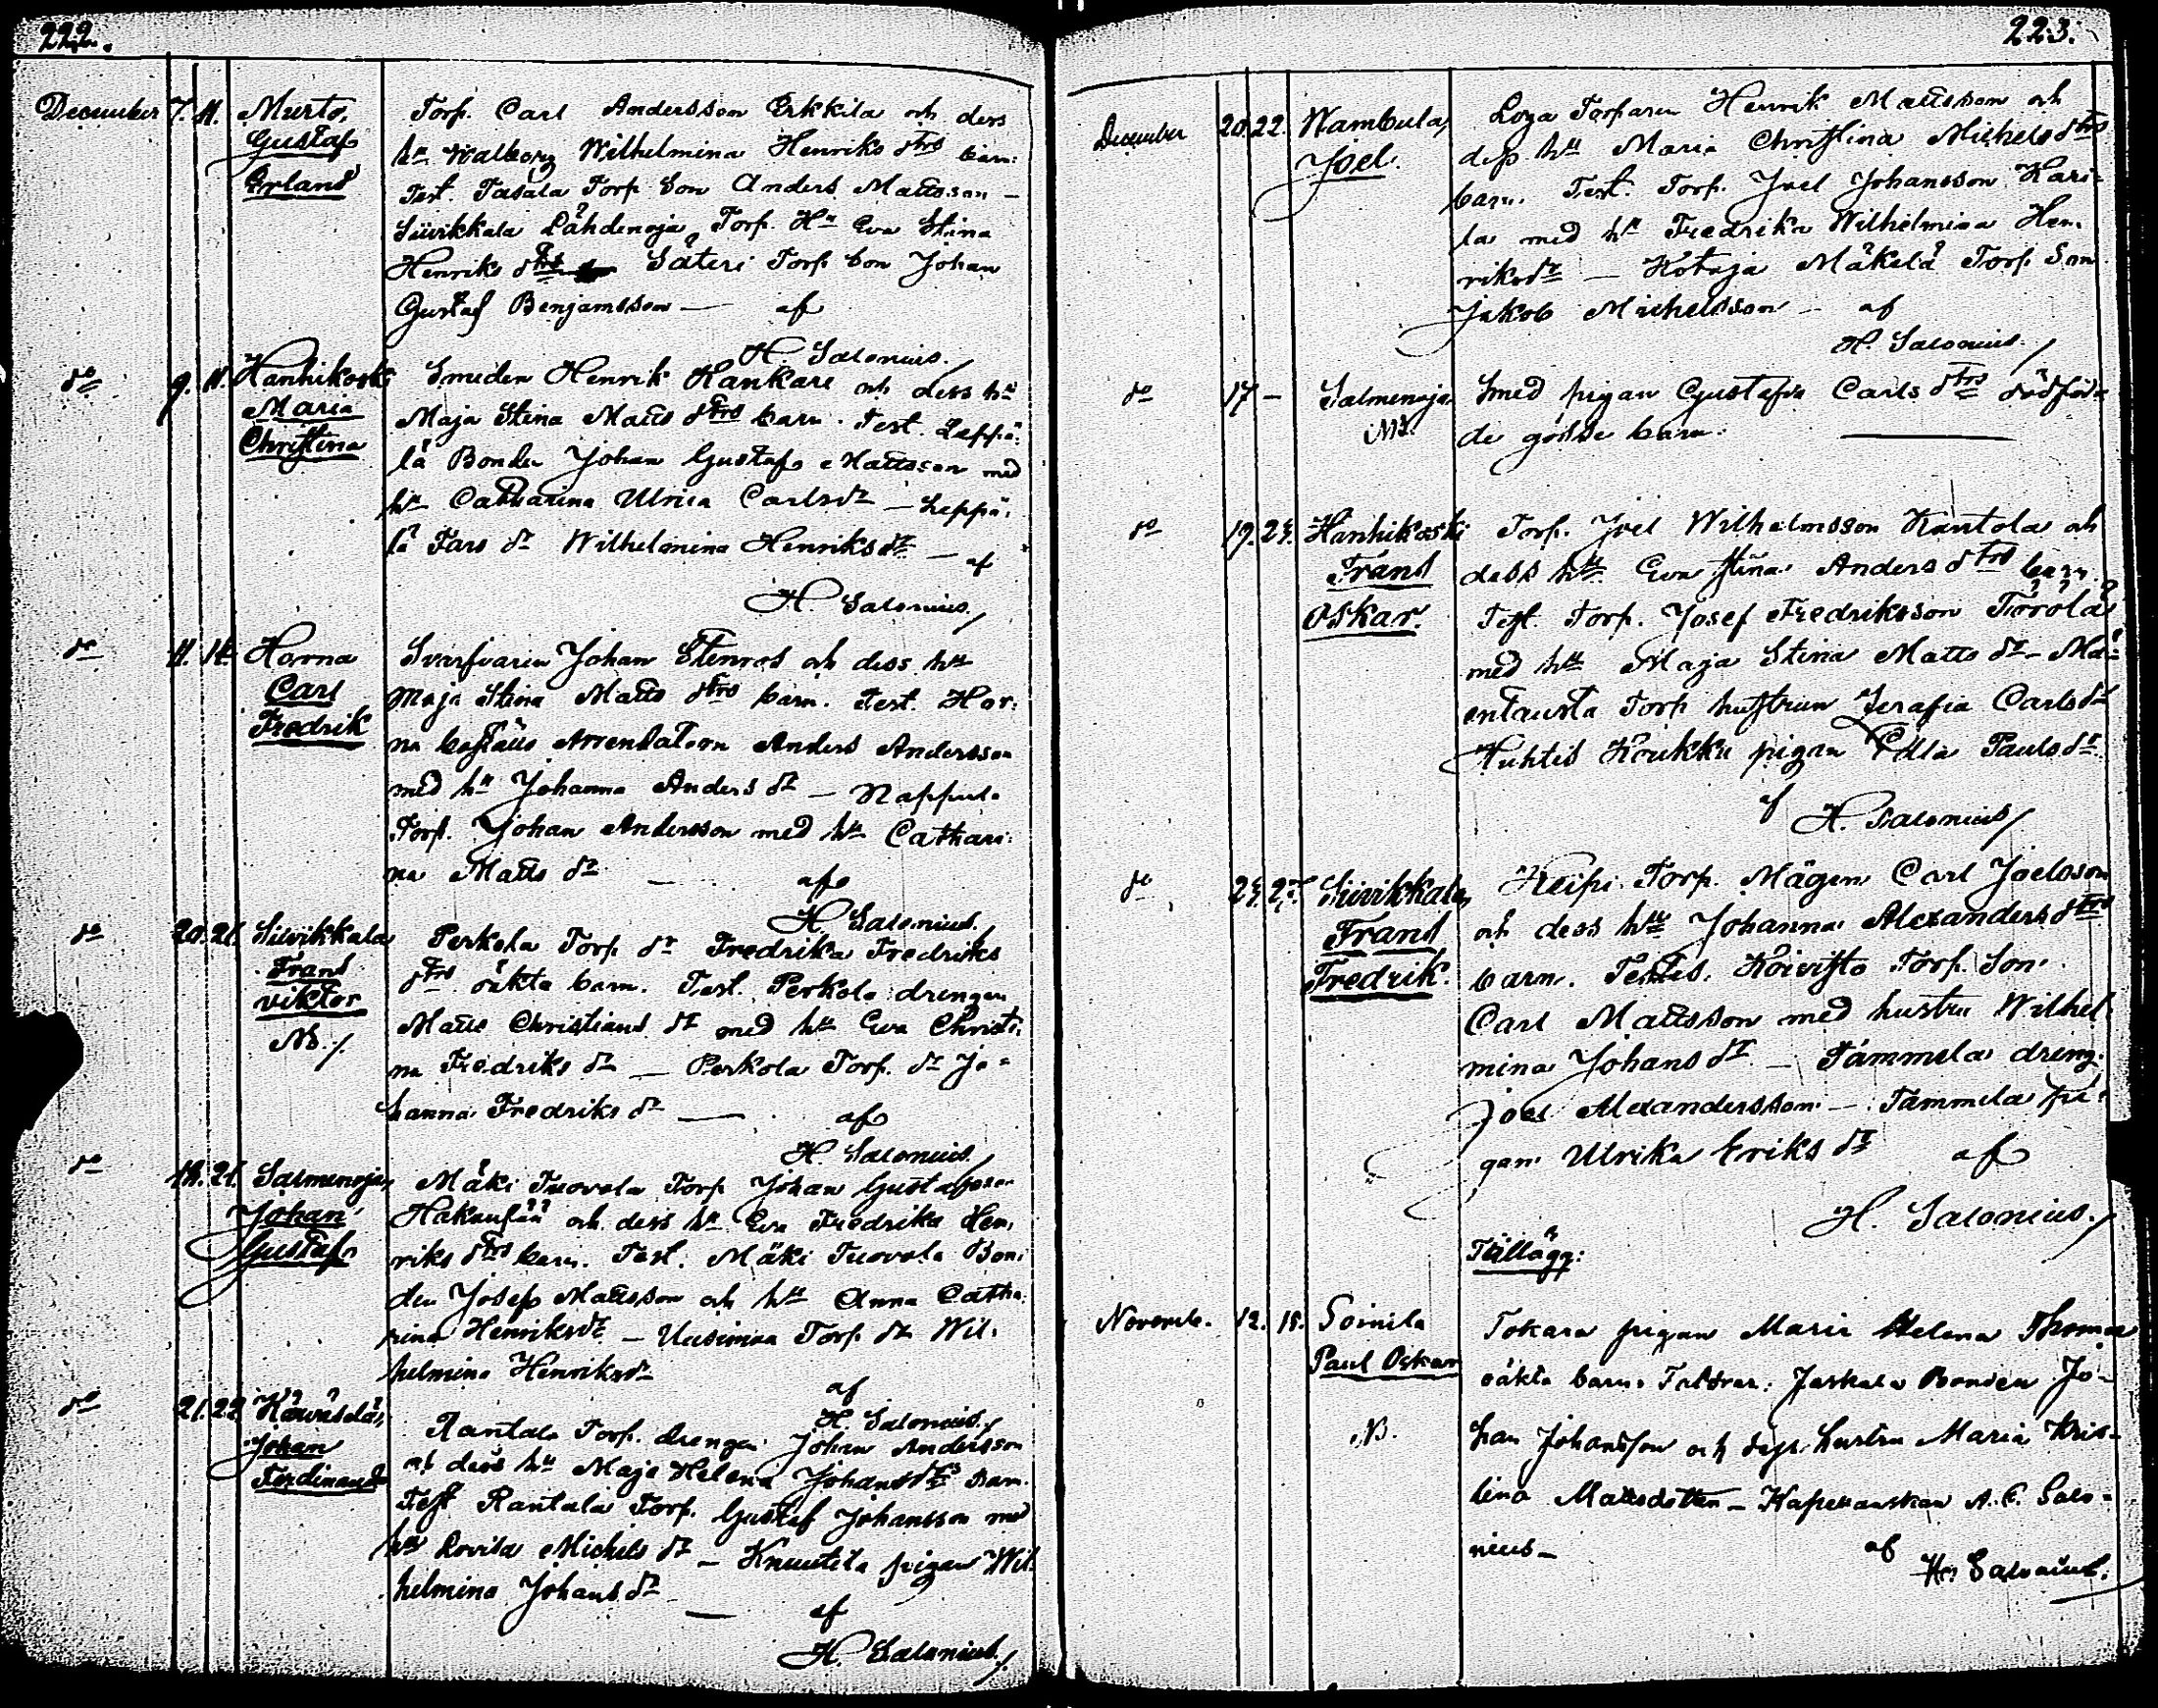 222.
December 7. 11. Murto,
Gustaf
Erland
Torp. Carl Andersson Erkkila och dess
hu Walborg Wilhelmina Henriks dtrs barn.
Test. Tasala Torp. Son Anders Mattsson —
Siivikkala Lähdenoja Torp. Hu Eva Stina
Henriks dtrs Säteri Torp. Son Johan
Gustaf Benjamsson — af
H. Salonius.
do 9. 11. Hanhikoski
Maria
Christina
Smeden Henrik Kankare och dess hu
Maja Stina Matts dtrs barn. Test. Leppä-
lä Bonden Johan Gustaf Mattsson med
hu Catharina Ulrica Carlsdr — Leppä-
lä Fars dr Wilhelmina Henriksdr — af
H. Salonius.
do 11. 14. Horna
Carl
Fredrik
Svarfvaren Johan Stenros och dess hu
Maja Stina Matts dtrs barn. Test. Hor-
na boställs Arrendatorn Anders Andersson
med hu Johanna Anders dr — Nappula
Torp. Johan Andersson med hu Cathari-
na Matts dr — af
H. Salonius.
do 20. 21. Siivikkala
Frans
Viktor
NB.
Perkola Torp. dr Fredrika Fredriks
dtrs oäkta barn. Test. Perkola drengen
Matts Christians dr med hu Eva Christi-
na Fredriks dr — Perkola Torp. dr Jo-
hanna Fredriks dr — af
H. Salonius.
do 18. 21. Salmenoja,
Johan
Gustaf
Mäki Tuovola Torp. Johan Gustafsson
Hakanpää och dess hu Eva Fredrika Hen-
riks dtrs barn. Test. Mäki Tuovola Bon-
den Josef Mattsson och hu Anna Catha-
rina Henriksdr — Uusimaa Torp. dr Wil-
helmina Henriksdr
af
H. Salonius.
do 21. 22.
Johan
Ferdinand
Rantala Torp. drengen Johan Andersson
och dess hu Maja Helena Johansdtrs barn.
Test. Rantala Torp. Gustaf Johansson med
hu Lovisa Michels dr — Knuutila pigan Wil-
helmina Johans dr — af
H. Salonius.
223.
December 20. 22. Wambula,
Joel.
Loya Torparen Henrik Mattsson och
dess hu Maria Christina Michelsdtrs
barn. Test. Torp. Joel Johansson Kari-
la med hu Fredrika Wilhelmina Hen-
riksdr — Kotoja Mäkelä Torp. Son
Jakob Michelsson — af
H. Salonius.
do 17 — Salmenoja
NB.
Smed pigan Gustafva Carls dtrs dödföd-
de gosse barn.
do 19. 24. Hanhikoski
Frans
Oskar.
Torp. Joel Wilhelmsson Kantola och
dess hu Eva Stina Anders dtrs barn.
Test. Torp. Josef Fredriksson Törölä
med hu Maja Stina Matts dr — Mä-
entausta Torp. hustrun Serafia Carlsdr
Huhtis Koukku pigan Ulla Paulsdr
af
H. Salonius
do 24. 27. Siivikkala,
Frans
Fredrik.
Keipi Torp. Mågen Carl Joelsson
och dess hu Johanna Alexanders dtrs
barn. Testes. Koivisto Torp. Son
Carl Mattsson med hustru Wilhel-
mina Johans dr — Tammela dreng
Joel Alexandersson — Tammela pi-
gan Ulrika Eriks dr af
H. Salonius.
Tillägg:
Novemb. 12. 18. Soinila
Paul Oskar
NB.
Tokara pigan Maria Helena Thomæ
oäkta barn. Faddrar: Jaskala Bonden Jo-
han Johansson och dess hustru Maria Kris-
tina Mattsdotter — Kapellanskan A. C. Salo-
nius — af
H. Salonius.